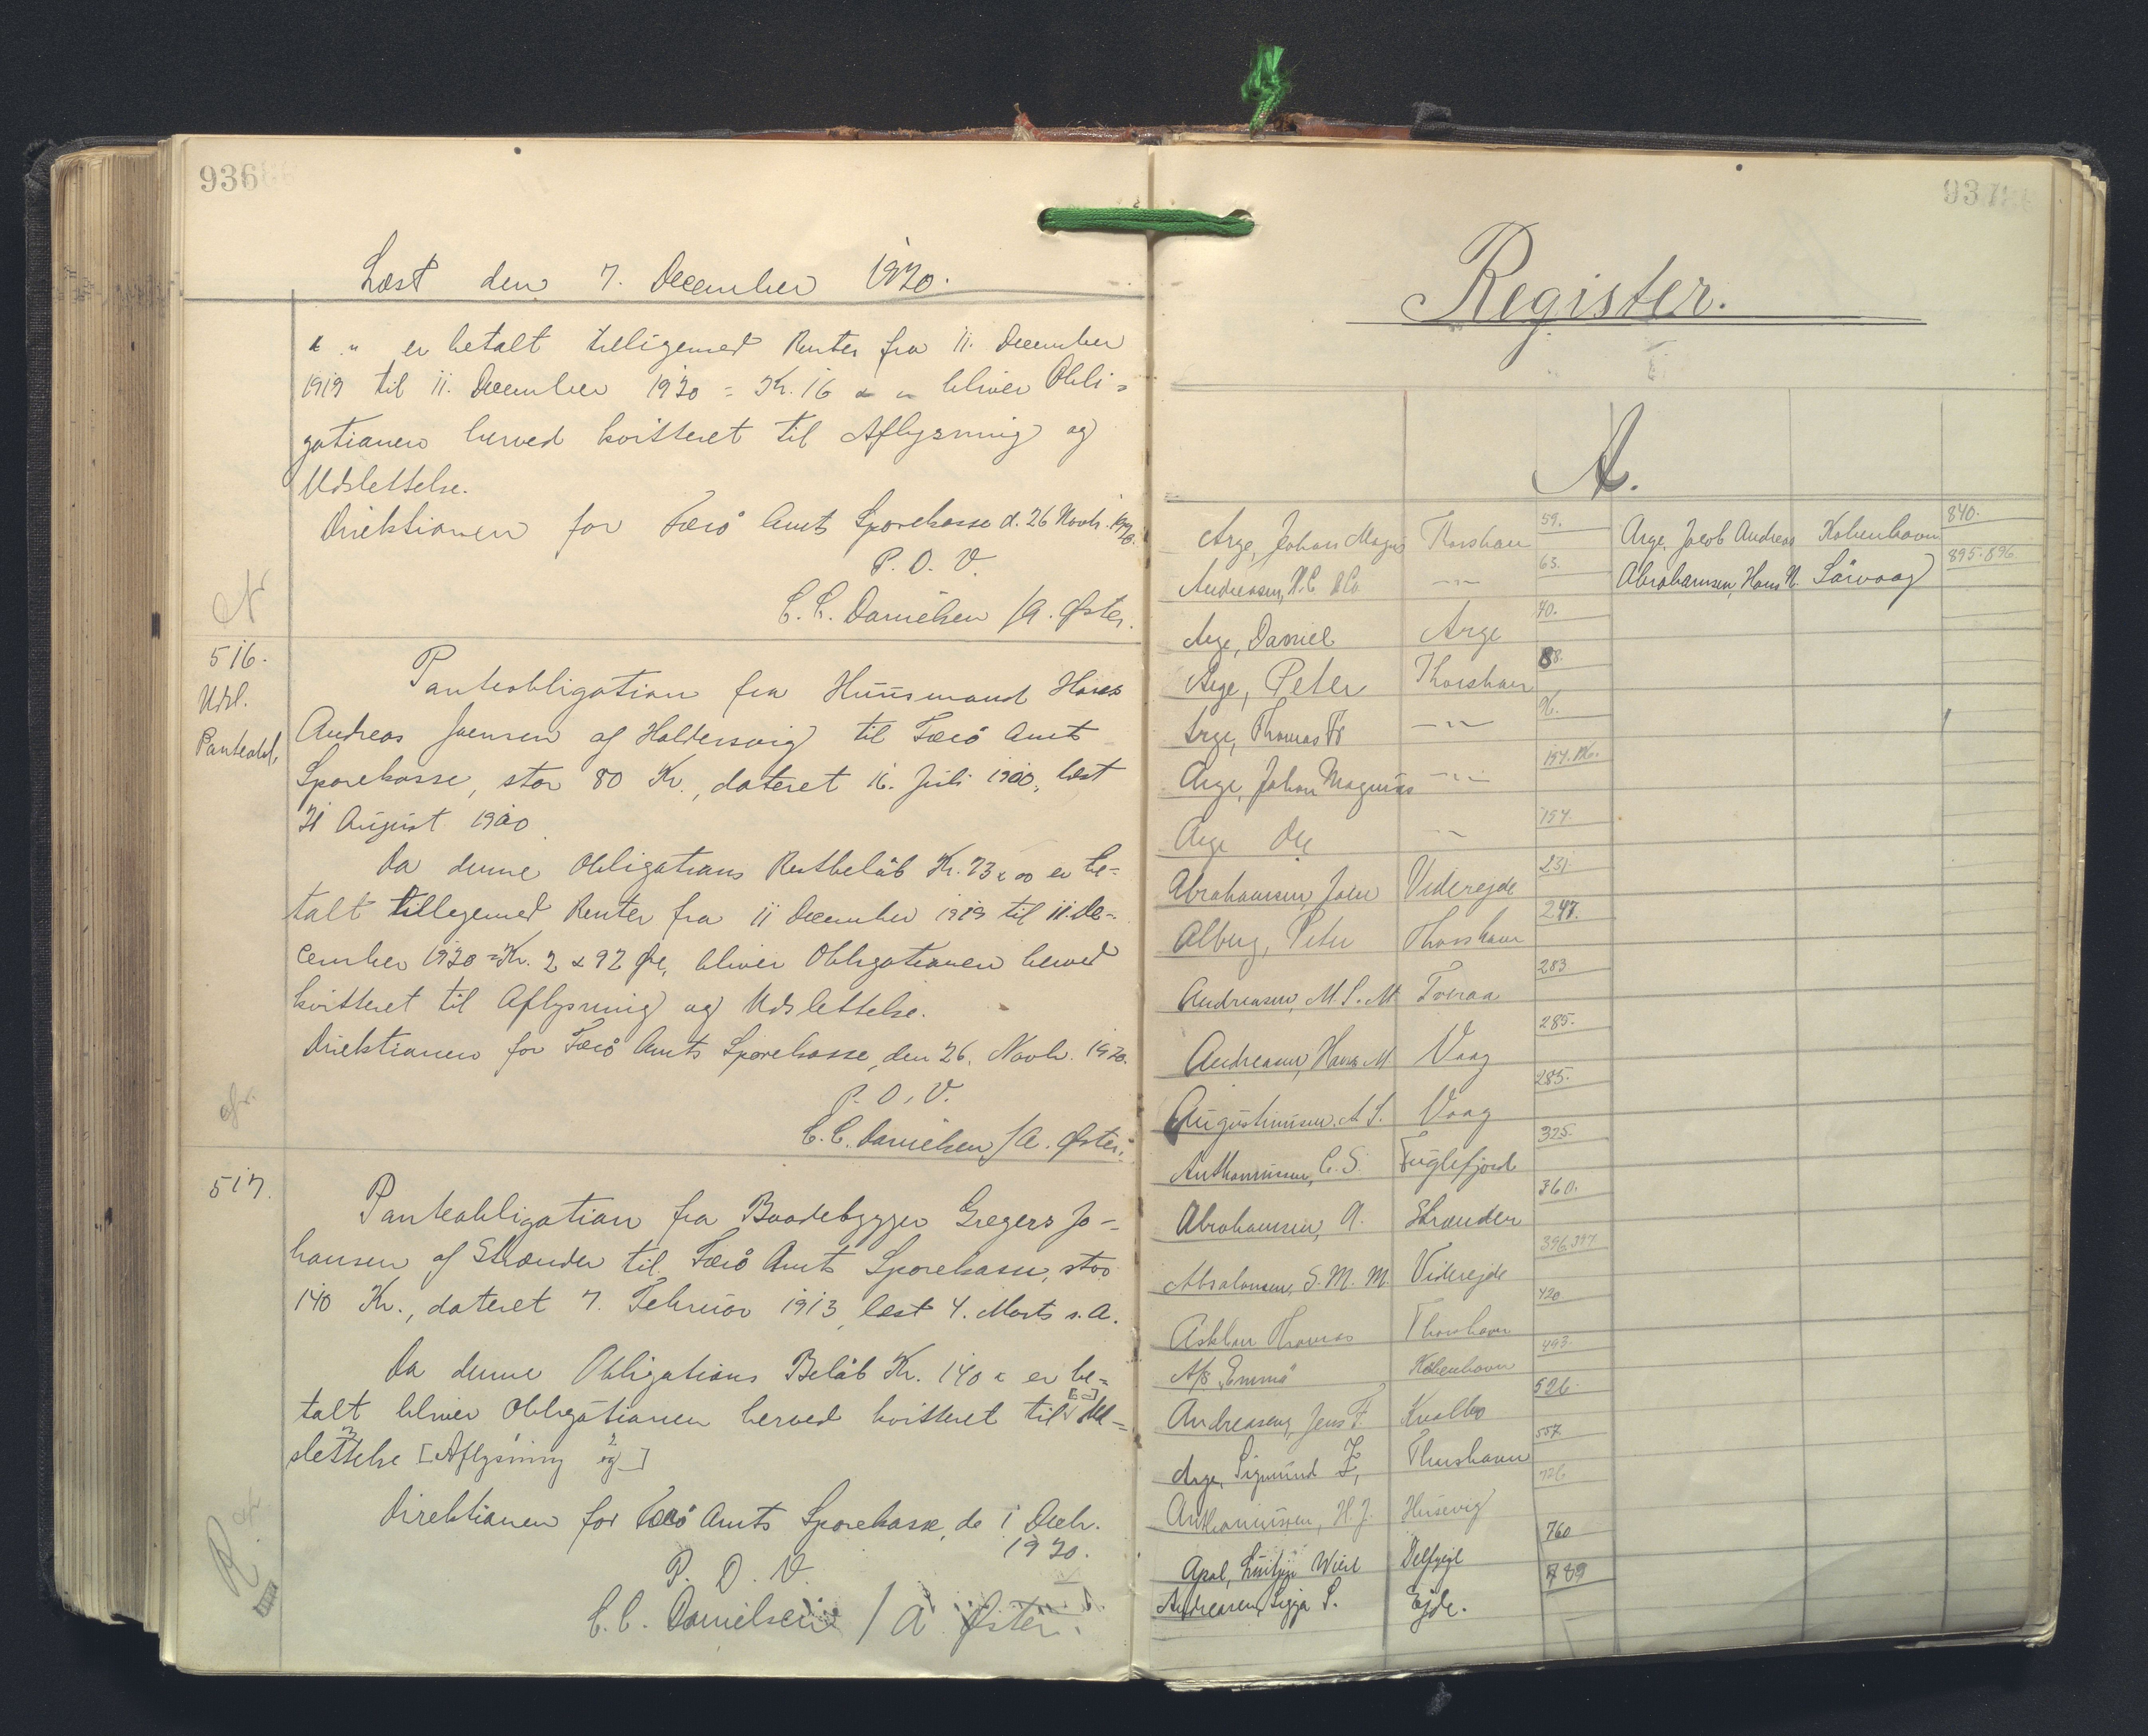 936
Læst den 7. December 1920.
" " er betalt tilligemed Renter fra 11. December
1919 til 11. December 1920 = Kr. 16 " " bliver Obli=
gationen herved kvitteret til Aflysning og
Udslettelse.
Direktionen for Færö Amts Sparekasse d. 26 Novb. 1920.
P. D. V.
C. C. Danielsen /A. Øster.
516.
Udsl.
Panteobl.
Panteobligation fra Huusmand Hans
Andreas Joensen af Haldersvig til Færö Amts
Sparekasse, stor 80 Kr., dateret 16. Juli 1900, læst
31 August 1900
Da denne Obligations Restbelöb Kr. 73 x 00 er be=
talt tilligemed Renter fra 11 December 1919 til 11. De=
cember 1920 = Kr. 2 x 92 Øre, bliver Obligationen herved
kvitteret til Aflysning og Udslettelse.
Direktionen for Færö Amts Sparekasse, den 26. Novb. 1920.
P. D. V.
C. C. Danielsen /A. Øster.
517.
Panteobligation fra Baadebygger Gregers Jo-
hansen af Strænder til Færö Amts Sparekasse, stor
140 Kr., dateret 7. Februar 1913, læst 4. Marts s. A.
Da denne Obligations Belöb Kr. 140 x er be=
talt bliver Obligationen herved kvitteret til Ud=
slettelse [Aflysning og]
Direktionen for Færö Amts Sparekasse, d. 1 Decb.
1920.
P. D. V.
C. C. Danielsen / A Øster.
937
Register.
A.
Arge, Johan Magnus Thorshavn 59. Arge, Jacob Andreas Kobenhavn 840.
Andreasen, H.C. & Co. -"- 63. Abrahamsen, Hans N. Sörvaag 895.896
Arge, Daniel Arge 70.
Arge, Peter Thorshavn 88.
Arge, Thomas Fr -"-
Arge, Johan Magnus -"-
Arge Ole -"- 154.
Abrahamsen, Joen Viderejde 231.
Alberg, Peter Thorshavn 247.
Andreasen, M. S. M. Tveraa 283
Andreasen, Hans M Vaag 285.
Augustinusen, A. S. Vaag 285.
Anthoniussen, C. S. Fuglefjord 325.
Abrahamsen, A. Strænder 360.
Absalonsen, S. M. M. Viderejde 396.397
Askham Thomas Thorshavn 420
A/S "Emma" Köbenhavn 493.
Andreasen, Jens F. Kvalbö 526.
Arge, Sigmund Z, Thorshavn 557.
Anthoniussen, H. J. Husevig 726.
Apol, Wiert Delfzijl 760
Andreasen, Sigga S. Ejde. 789